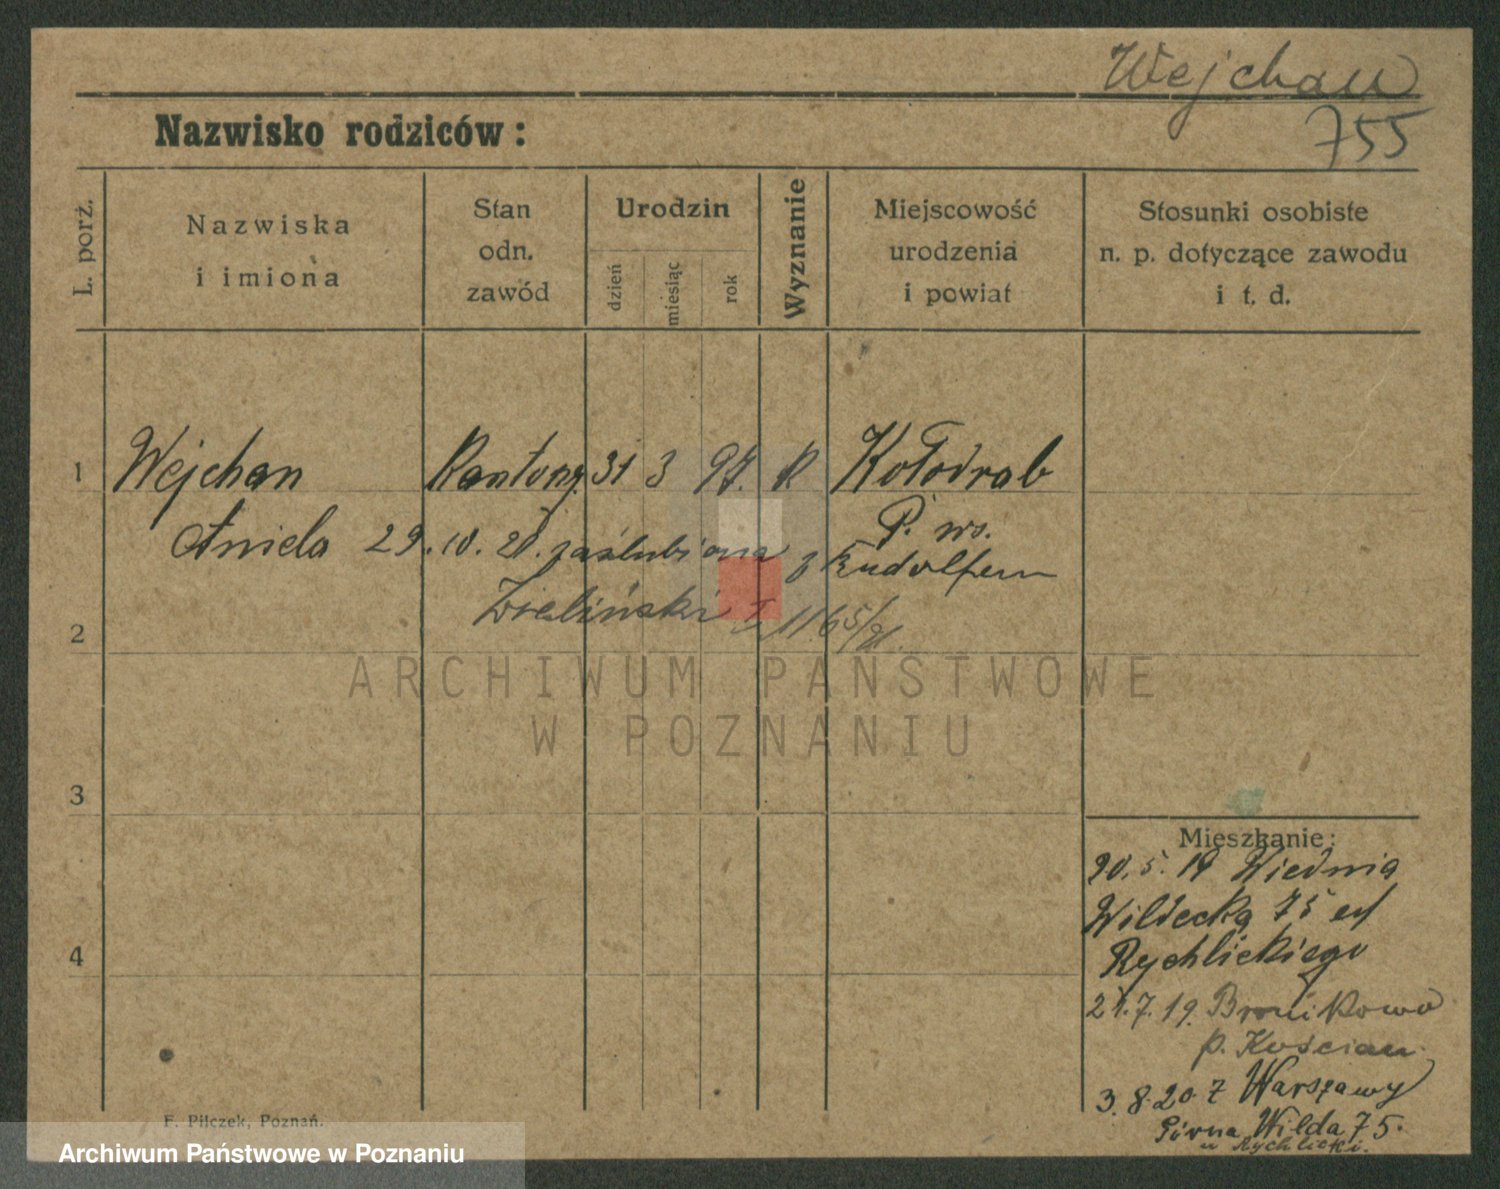 Wejchan
755
Nazwisko rodziców:
L. porż.
Nazwiska
i imiona
Stan
odn.
zawód
Urodzin
dzień
miesiąc
rok
Wyznanie
Miejscowość
urodzenia
i powiat
Stosunki osobiste
n. p. dotyczące zawodu
i t. d.
1 Wejchan Kantorz. 31 3 97. R Kołodrąb
P. ws.
Aniela 29.10.20. zaślubiona z Rudolfem
Zieliński 1165/21.
2
ARCHIWUM PAŃSTWOWE
W POZNANIU
3
Mieszkanie:
20.5.19 Wiednia
Wildecka 75 
Rychlickiego
4
21.7.19. Bronikowo
p. Kościan
3.8.20 z Warszawy
Górna Wilda 75.
u Rychlicki.
F. Pilczek, Poznań.
Archiwum Państwowe w Poznaniu